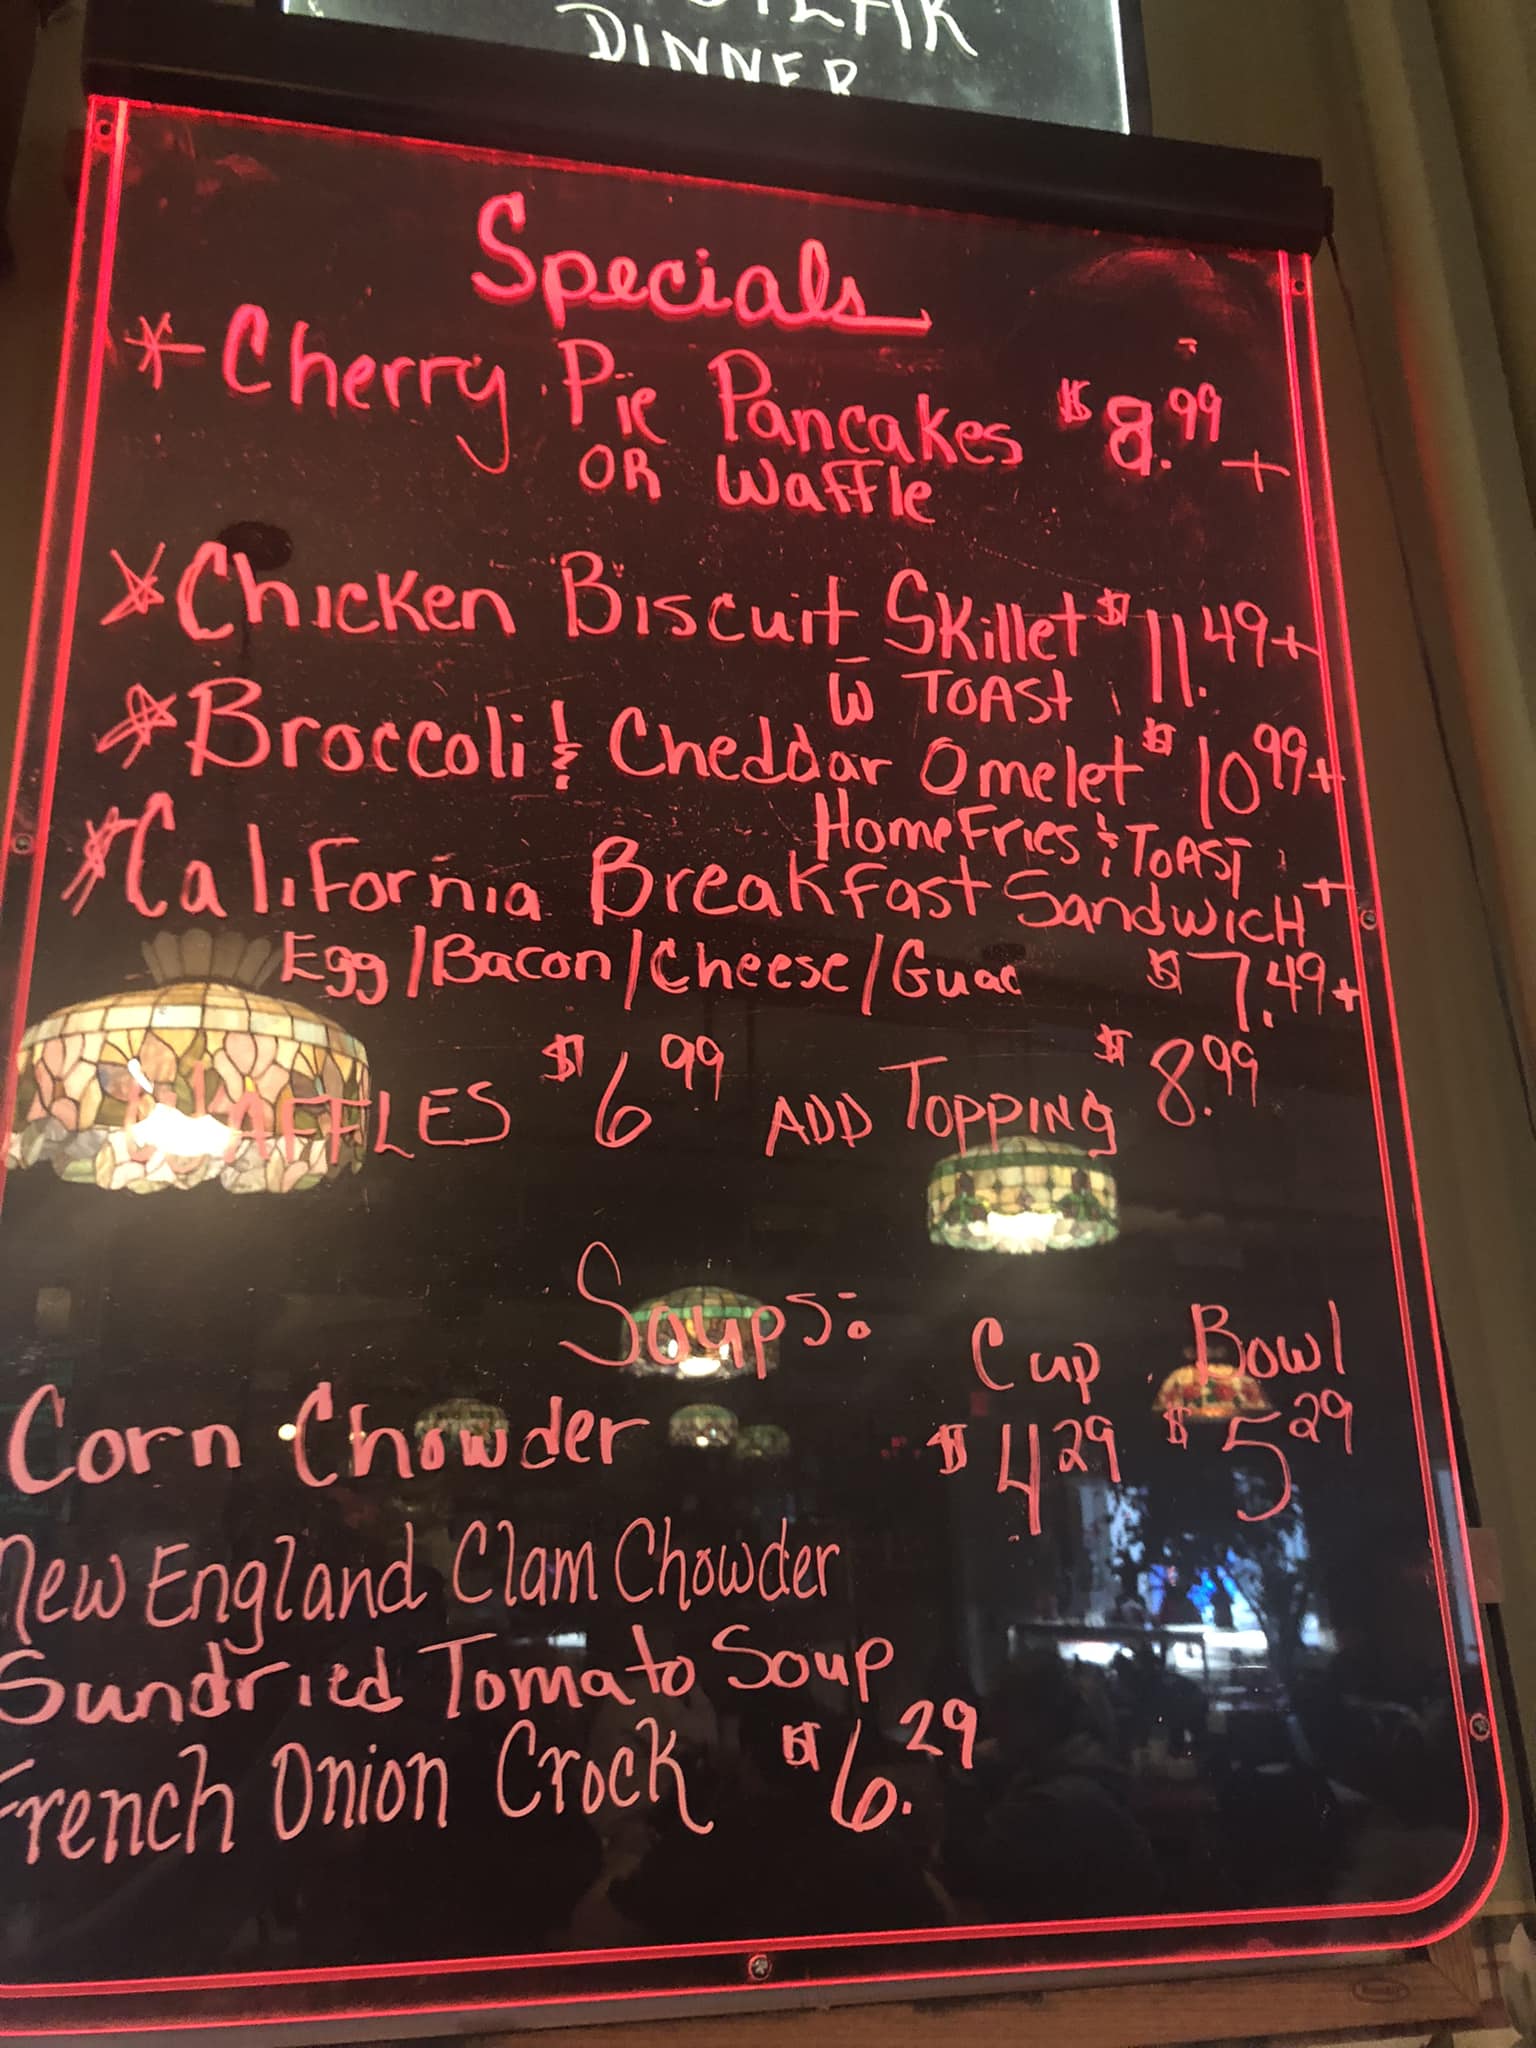 DINNER
Specials
* Cherry Pie Pancakes $8.99 +
OR Waffle
* Chicken Biscuit Skillet $11.49+
w TOAST
* Broccoli & Cheddar Omelet $10.99+
HomeFries & TOAST
* California Breakfast Sandwich +
Egg/Bacon/Cheese/Guac $7.49+
WAFFLES $6.99 ADD TOPPING $8.99
Soups: Cup Bowl
Corn Chowder $4.29 $5.29
New England Clam Chowder
Sundried Tomato Soup
French Onion Crock $6.29